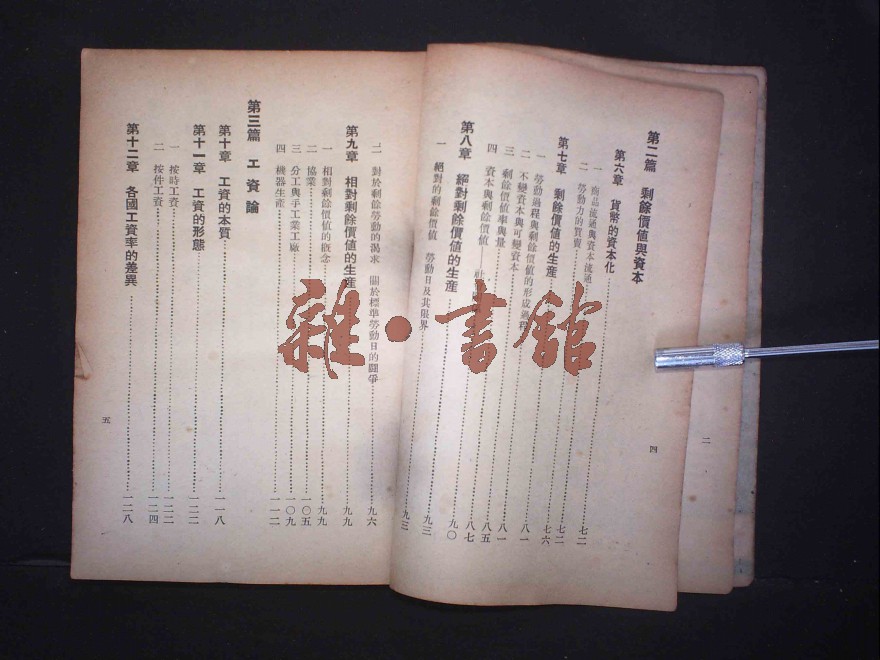 第二篇 剩餘價值與資本
第六章 貨幣的資本化
一 商品流通與資本流通
二 勞動力的買賣……七二
第七章 剩餘價值的生產……七二
一 勞動過程與剩餘價值的形成過程……七六
二 不變資本與可變資本……八一
三 剩餘價值率與量……八一
四 資本與剩餘價值——社……八五
八七
第八章 絕對剩餘價值的生產……九〇
一 絕對的剩餘價值 勞動日及其限界……九三
九三
四
二 對於剩餘勞動的渴求 關於標準勞動日的鬪爭……九六
第九章 相對剩餘價值的生產……九九
一 相對剩餘價值的概念……九九
二 協業……一〇五
三 分工與手工業工廠……一〇九
四 機器生產……一一二
第三篇 工資論
第十章 工資的本質……一一八
第十一章 工資的形態……一二二
一 按時工資……一二二
二 按件工資……一二四
第十二章 各國工資率的差異……一二八
五
二
雜·書館